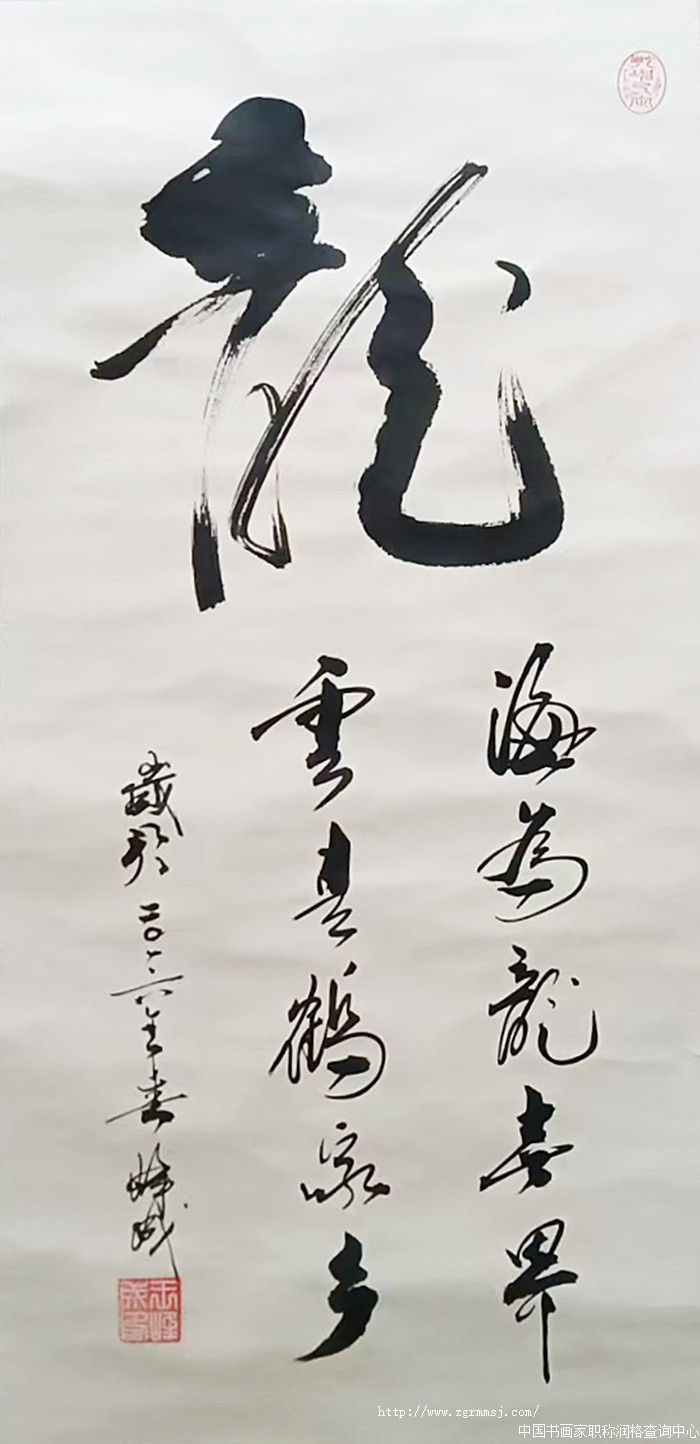 龍
海為龍世界
雲是鶴家乡
歲於二〇一六年春
http://www.zgrmmsj.com/
中国书画家职称润格查询中心